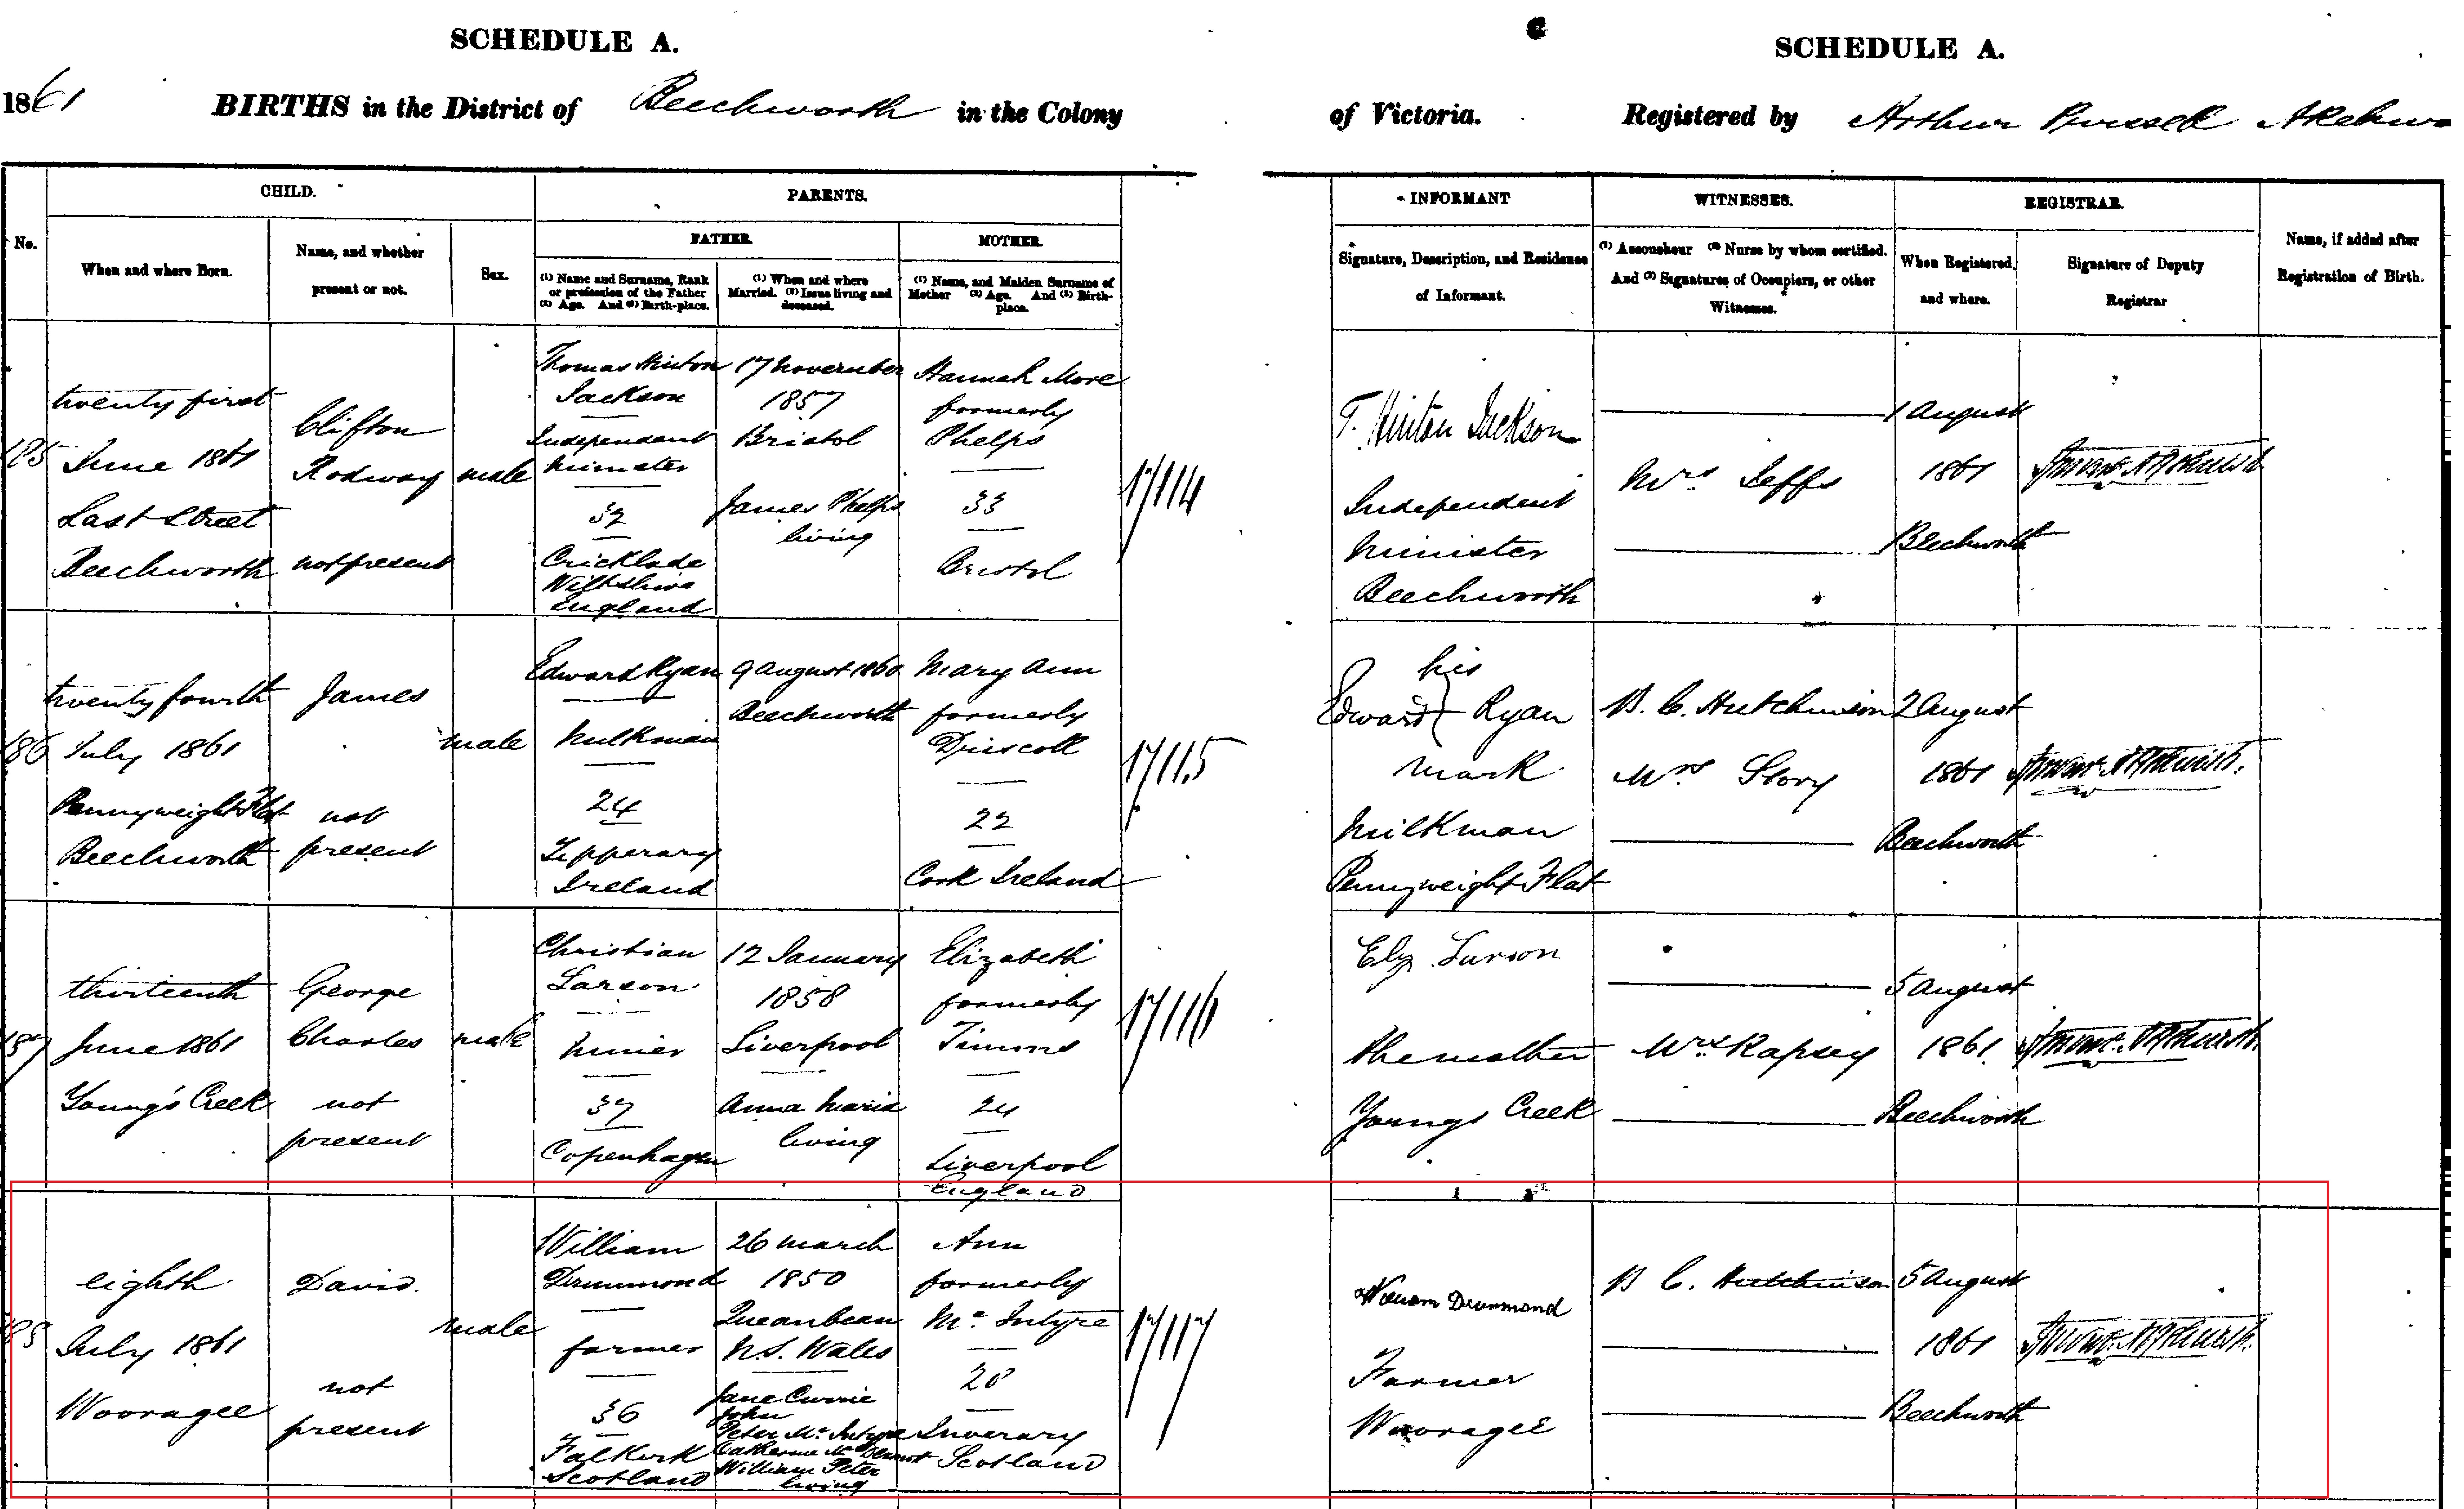 SCHEDULE A.
SCHEDULE A.
1861 BIRTHS in the District of Beechworth in the Colony
of Victoria. Registered by Arthur
CHILD.
PARENTS.
INFORMANT
WITNESSES.
REGISTRAR.
No.
When and where Born.
Name, and whether
present or not.
Sex.
FATHER.
MOTHER.
(1) Name and Surname, Rank
or profession of the Father
(2) Age. And (3) Birth-place.
(1) When and where
Married. (2) Issue living and
deceased.
(1) Name, and Maiden Surname of
Mother (2) Age. And (3) Birth-
place.
Signature, Description, and Residence
of Informant.
(1) Accoucheur (2) Nurse by whom certified.
And (3) Signatures of Occupiers, or other
Witnesses.
When Registered,
and where.
Signature of Deputy
Registrar
Name, if added after
Registration of Birth.
185
twenty first
June 1861
Last Street
Beechworth
Clifton
Rodway
not present
male
Thomas Hinton
Jackson
Independent
minister
32
Cricklade
Wiltshire
England
17 November
1857
Bristol
James Phelps
living
Hannah More
formerly
Phelps
33
Bristol
17114
T. Hinton Jackson
Independent
Minister
Beechworth
Mrs Jeffs
1 August
1861
Beechworth
186
twenty fourth
July 1861
Pennyweight Flat
Beechworth
James
not
present
male
Edward Ryan
Milkman
24
Tipperary
Ireland
9 August 1860
Beechworth
Mary Ann
formerly
Driscoll
22
Cork Ireland
17115
his
Edward Ryan
mark
Milkman
Pennyweight Flat
B. C. Hutchinson
Mrs Story
2 August
1861
Beechworth
187
thirteenth
June 1861
Young's Creek
George
Charles
not
present
male
Christian
Larson
Miner
37
Copenhagen
12 January
1858
Liverpool
Anna Maria
living
Elizabeth
formerly
Timms
24
Liverpool
England
17116
Elz Larson
the mother
Youngs Creek
Mrs Rapsey
5 August
1861
Beechworth
188
eighth
July 1861
Wooragee
David
not
present
male
William
Drummond
farmer
36
Falkirk
Scotland
26 march
1850
Queanbean
N.S. Wales
Jane Currie
John
Peter McIntyre
Catherine McDermot
William Peter
living
Ann
formerly
McIntyre
28
Inverary
Scotland
17117
William Drummond
Farmer
Wooragee
B C. Hutchinson
5 August
1861
Beechworth